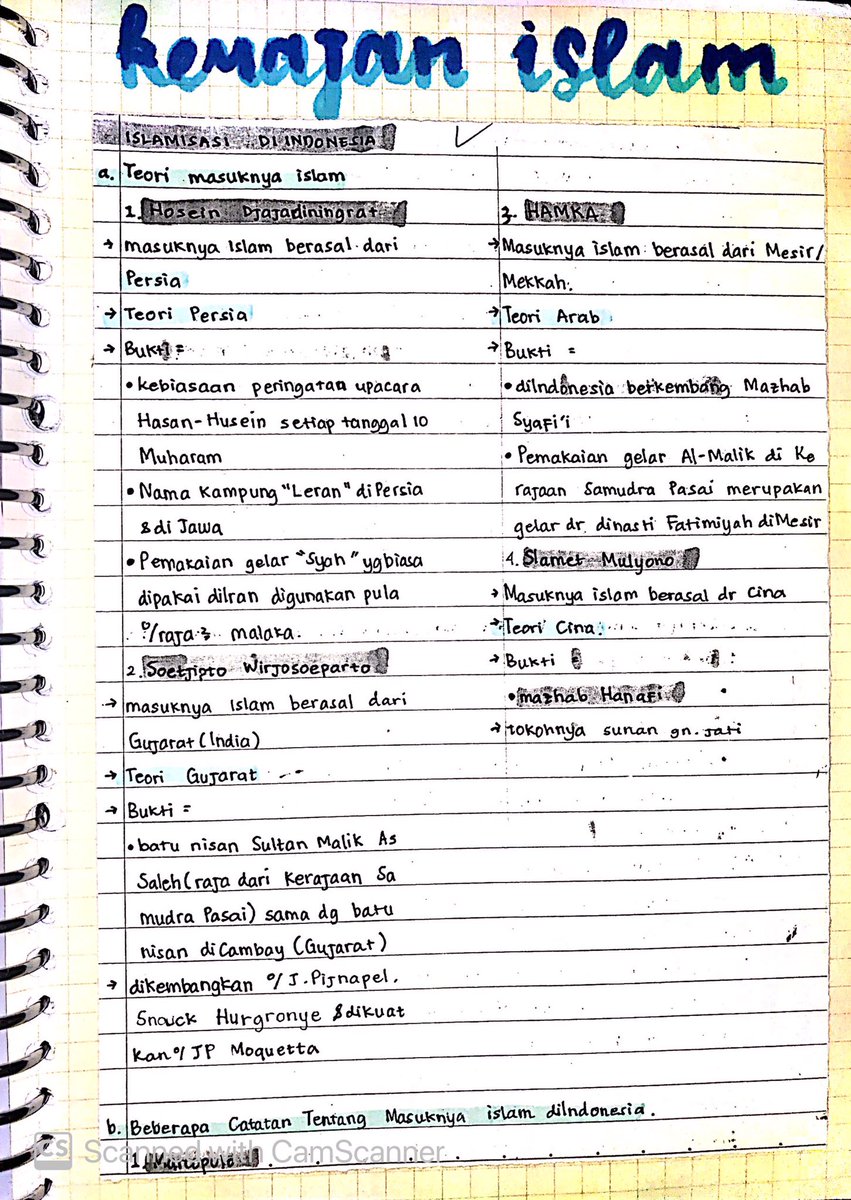 kerajan islam
ISLAMISASI DI INDONESIA
a. Teori masuknya islam
1. Hosein Djajadiningrat
→ masuknya Islam berasal dari
Persia
→ Teori Persia
→ Bukti =
• kebiasaan peringatan upacara
Hasan-Husein setiap tanggal 10
Muharam
• Nama Kampung "Leran" di Persia
& di Jawa
• Pemakaian gelar "Syah" yg biasa
dipakai diIran digunakan pula
o/ raja2 malaka.
2. Soetjipto Wirjosoeparto
→ masuknya Islam berasal dari
Gujarat (India)
→ Teori Gujarat
→ Bukti =
• batu nisan Sultan Malik As
Saleh (raja dari Kerajaan Sa
mudra Pasai) sama dg batu
nisan di Cambay (Gujarat)
→ dikembangkan o/ J. Pijnapel.
Snouck Hurgronye & dikuat
kan o/ JP Moquetta
3. HAMKA
→ Masuknya islam berasal dari Mesir/
Mekkah.
→ Teori Arab
→ Bukti =
• diIndonesia berkembang Mazhab
Syafi'i
• Pemakaian gelar Al-Malik di Ke
rajaan Samudra Pasai merupakan
gelar dr. dinasti Fatimiyah di Mesir
4. Slamet Mulyono
→ Masuknya islam berasal dr Cina
→ Teori Cina.
→ Bukti :
• mazhab Hanafi
→ tokohnya sunan gn. jati
b. Beberapa Catatan Tentang Masuknya islam diIndonesia.
1.
CS Scanned with CamScanner